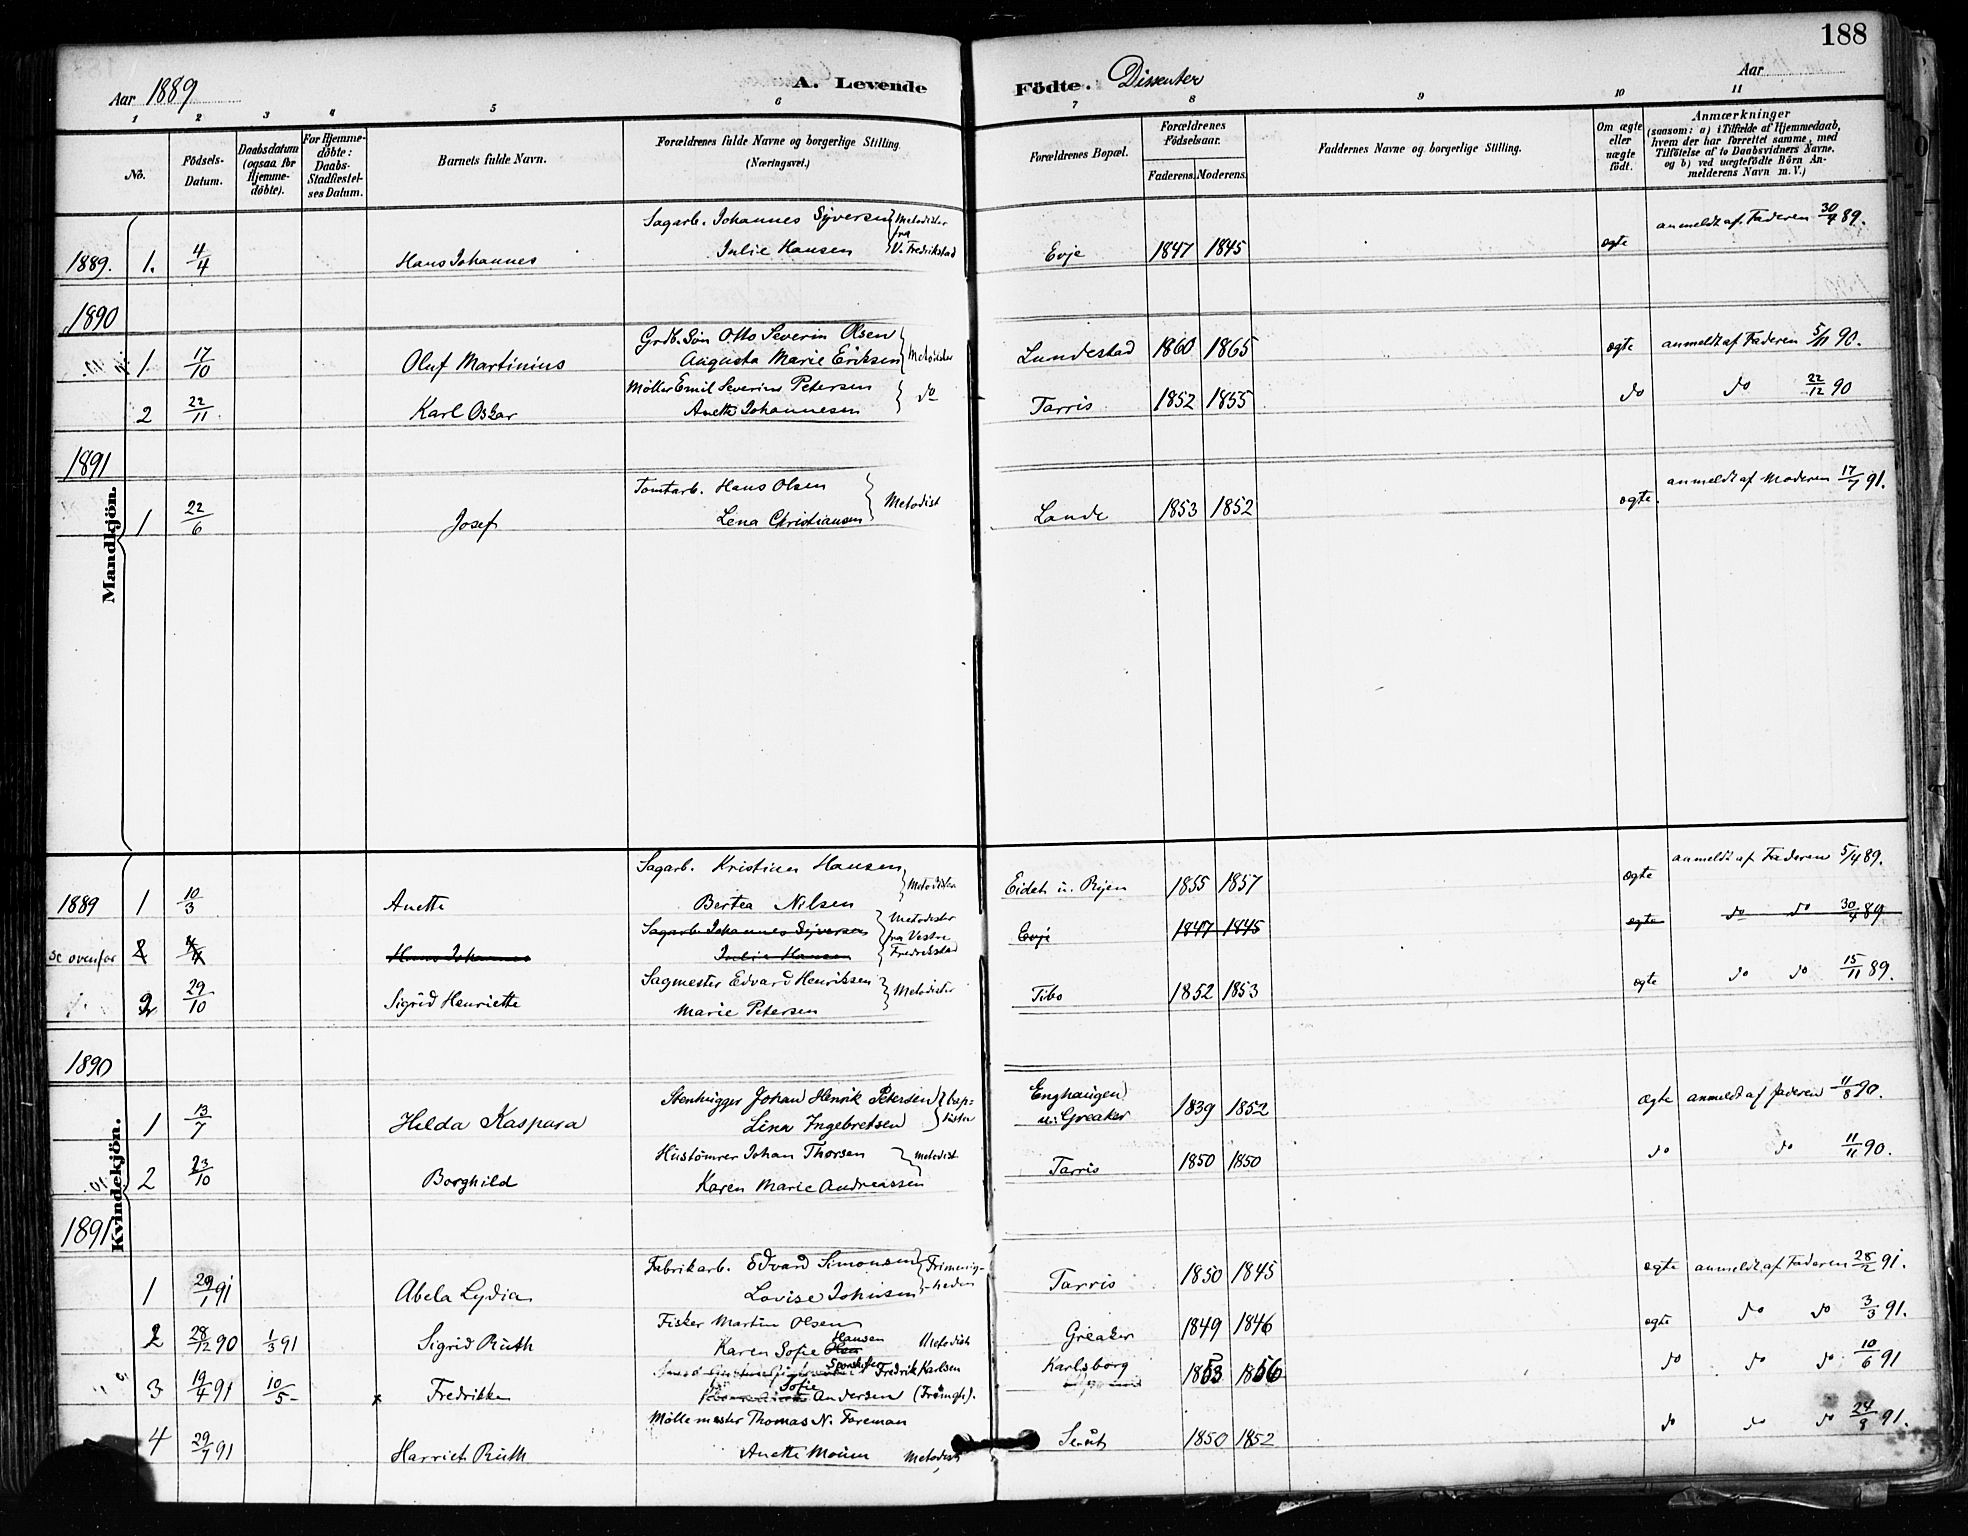 188
Aar 1889
A. Levende Födte. Dissenter
Aar
1 2 3 4 5 6 7 8 9 10 11
No.
Födsels-Datum.
Daabsdatum (ogsaa for Hjemme-döbte).
For Hjemme-döbte: Daabs-Stadfæstel-ses Datum.
Barnets fulde Navn.
Forældrenes fulde Navne og borgerlige Stilling. (Næringsvei.)
Forældrenes Bopæl.
Forældrenes Födselsaar.
Faderens. Moderens.
Faddernes Navne og borgerlige Stilling.
Om ægte eller uægte födt.
Anmærkninger (saasom: a) i Tilfælde af Hjemmedaab, hvem der har forrettet samme, med Tilföielse af to Daabsvidners Navne, og b) ved uægtefödte Börn An-melderens Navn m. V.)
Mandkjön.
Sagarb. Johannes Syversen Metodister anmeldt af Faderen 30/4 89.
1889. 1. 4/4 Hans Johannes Julie Hansen fra V. Fredrikstad Evje 1847 1845 ægte
1890
Grdb. Søn Otto Severin Olsen
1 17/10 Oluf Martinius Augusta Marie Eriksen Metodister Lundestad 1860 1865 ægte anmeldt af Faderen 5/11 90.
Møller Emil Severin Petersen
2 22/11 Karl Oskar Anette Johannesen do Tarris 1852 1855 do do 22/12 90
1891
Tomtarb. Hans Olsen anmeldt af Moderen 17/7 91.
1 22/6 Josef Lena Christiansen Metodist Lande 1853 1852 ægte.
Kvindekjön.
Sagarb. Kristian Hansen anmeldt af Faderen 5/4 89.
1889 1 10/3 Anette Bertea Nilsen Metodister Eidet u. Ryen 1855 1857 ægte
Sagarb. Johannes Syversen Metodister
se ovenfor 2 4/4 Hans Johannes Julie Hansen fra Vestre Fredrikstad Evje 1847 1845 ægte do do 30/4 89.
Sagmester Edvard Henriksen
2 29/10 Sigrid Henriette Marie Petersen Metodister Tibo 1852 1853 ægte do do 15/11 89.
1890
Stenhugger Johan Henrik Petersen Bap-
1 13/7 Hilda Kaspara Lina Ingebretsen tister Enghaugen u. Greaker 1839 1852 ægte anmeldt af faderen 11/8 90.
Hustømrer Johan Thorsen Metodist
2 23/10 Borghild Karen Marie Andreassen Tarris 1850 1850 do do 11/11 90.
1891
Fabrikarb. Edvard Simonsen Frimenig-
1 29/1 91 Abela Lydia Lovise Johnsen heden Tarris 1850 1845 ægte anmeldt af Faderen 28/2 91.
Fisker Martin Olsen
2 28/12 90 1/3 91 Sigrid Ruth Karen Sofie Olsen Hansen Metodist Greaker 1849 1846 ægte do do 3/3 91.
Fredrik Karlsen
3 19/4 91 10/5 - x Fredrikke Sofie Andersen (Frimgh). Karlsborg 1853 1856 do do do 10/6 91
Møllemester Thomas N. Foreman
4 29/7 91 Harriet Ruth Anette Moum Metodist 1850 1852 do do do 24/9 91.